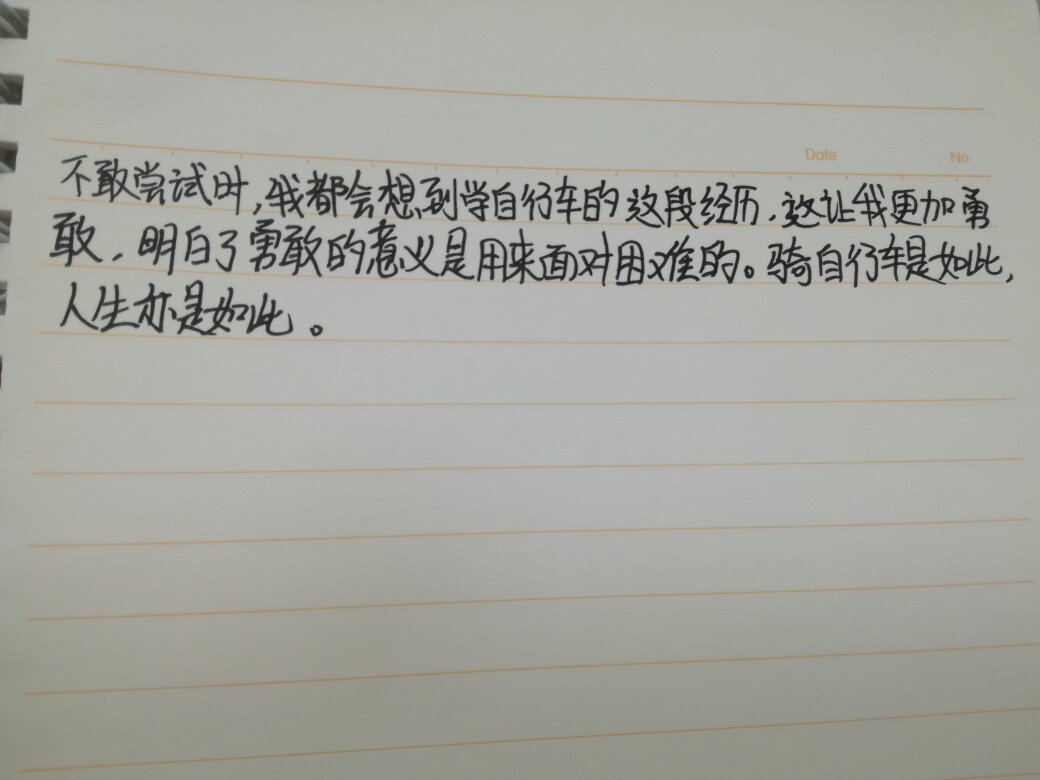 Date No
不敢尝试时,我都会想到学自行车的这段经历,这让我更加勇
敢,明白了勇敢的意义是用来面对困难的。骑自行车是如此,
人生亦是如此。